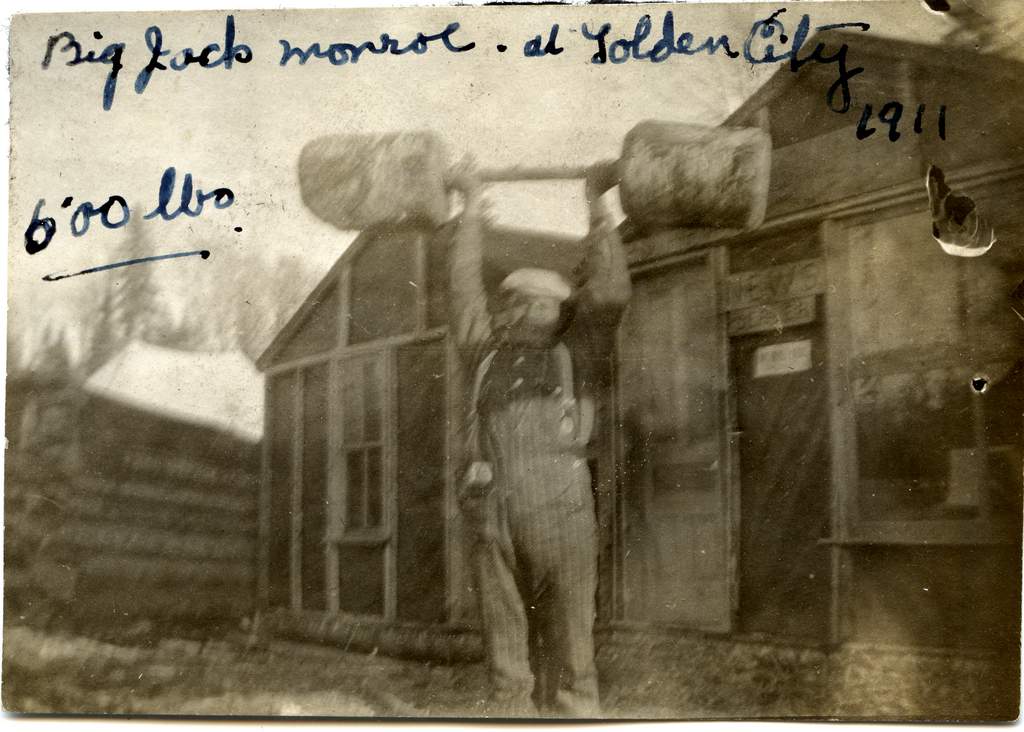 Big Jack monroe. at Golden City
1911
600 lbs.
NEWS